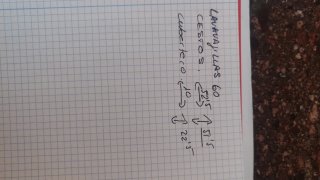 LAVAVAJILLAS 60
CESTOS. 52'5 51'5
Cubertero. 10 22'5